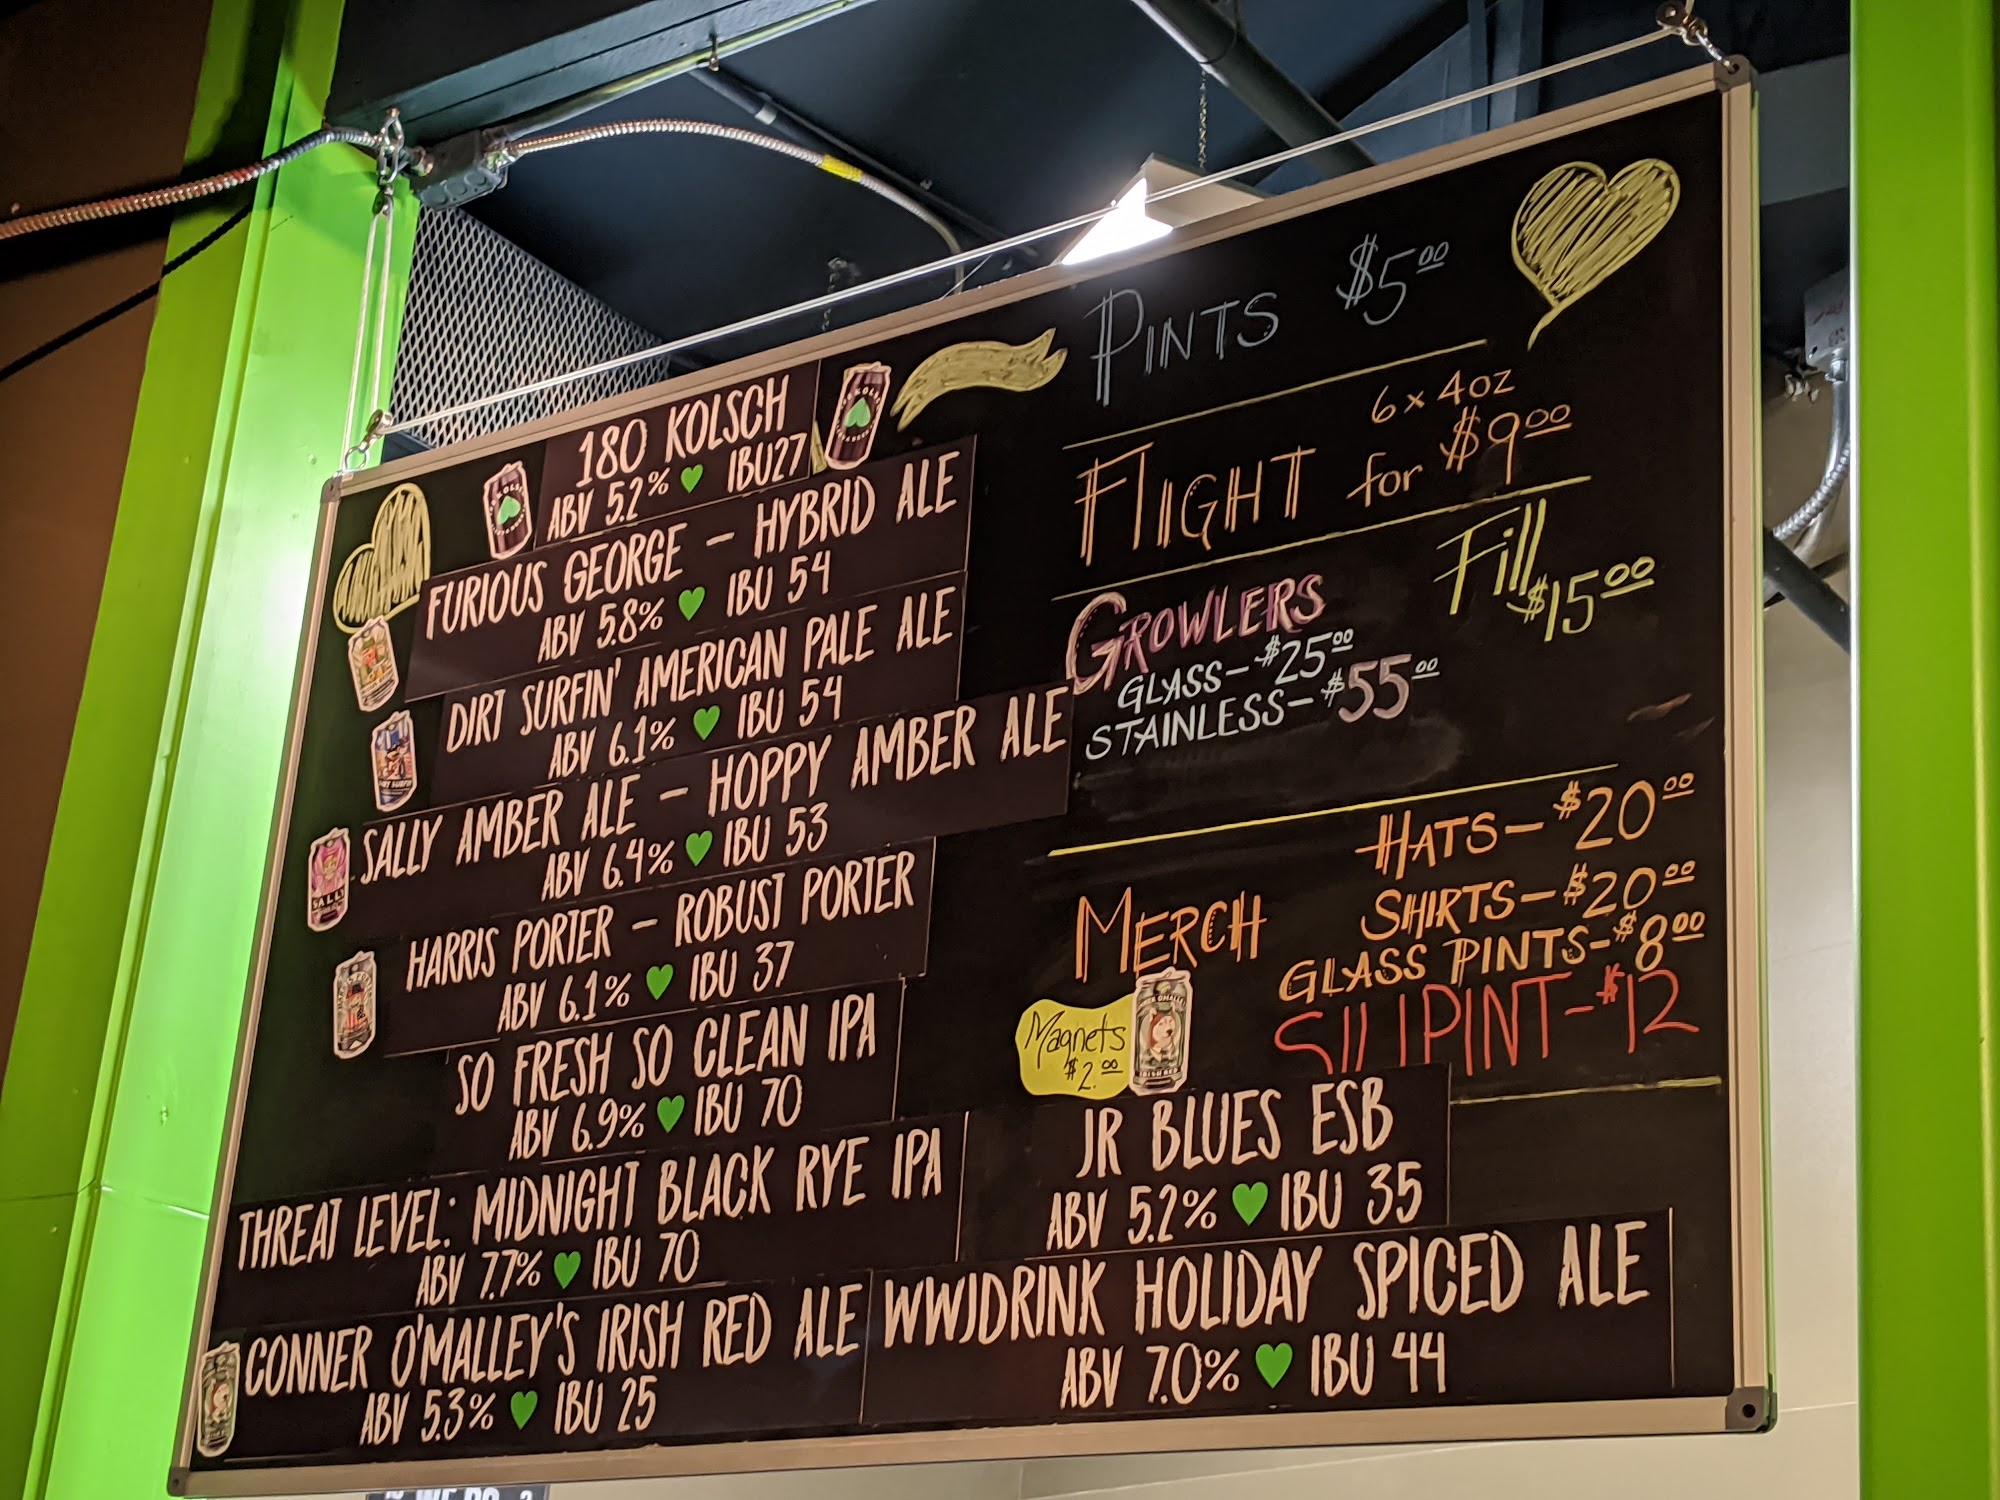 180 KOLSCH
ABV 5.2% IBU27
FURIOUS GEORGE – HYBRID ALE
ABV 5.8% IBU 54
DIRT SURFIN' AMERICAN PALE ALE
ABV 6.1% IBU 54
SALLY AMBER ALE – HOPPY AMBER ALE
ABV 6.4% IBU 53
SALLY
HARRIS PORTER – ROBUST PORTER
ABV 6.1% IBU 37
SO FRESH SO CLEAN IPA
ABV 6.9% IBU 70
THREAT LEVEL: MIDNIGHT BLACK RYE IPA
ABV 7.7% IBU 70
CONNER O'MALLEY'S IRISH RED ALE
ABV 5.3% IBU 25
PINTS $5.00
6 x 4oz
FLIGHT for $9.00
GROWLERS Fill
GLASS– $25.00 $15.00
STAINLESS– $55.00
HATS– $20.00
SHIRTS– $20.00
MERCH
GLASS PINTS– $8.00
SILIPINT– $12
Magnets
$2.00
IRISH RED
JR BLUES ESB
ABV 5.2% IBU 35
WWJDRINK HOLIDAY SPICED ALE
ABV 7.0% IBU 44